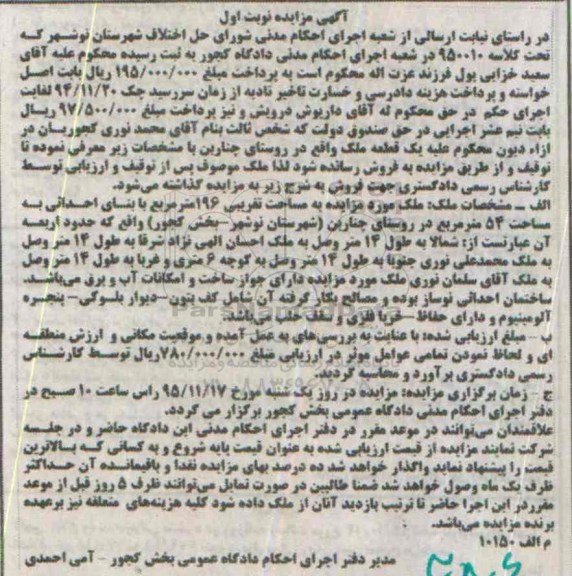 آگهی مزایده نوبت اول
در راستای نیابت ارسالی از شعبه اجرای احکام مدنی شورای حل اختلاف شهرستان نوشهر که
تحت کلاسه ۹۵۰۰۱۰ در شعبه اجرای احکام مدنی دادگاه کجور به ثبت رسیده محکوم علیه آقای
سعید خزایی پول فرزند عزت اله محکوم است به پرداخت مبلغ ۱۹۵/۰۰۰/۰۰۰ ریال بابت اصل
خواسته و پرداخت هزینه دادرسی و خسارت تاخیر تادیه از زمان سررسید چک ۹۴/۱۱/۲۰ لغایت
اجرای حکم در حق محکوم له آقای داریوش درویش و نیز پرداخت مبلغ ۹۷/۵۰۰/۰۰۰ ریال
بابت نیم عشر اجرایی در حق صندوق دولت که شخص ثالث بنام آقای محمد نوری کجوریان در
ازاء دیون محکوم علیه یک قطعه ملک واقع در روستای چنارین با مشخصات زیر معرفی نموده تا
توقیف و از طریق مزایده به فروش رسانده شود لذا ملک موصوف پس از توقیف و ارزیابی توسط
کارشناس رسمی دادگستری جهت فروش به شرح زیر به مزایده گذاشته می‌شود.
الف – مشخصات ملک: ملک مورد مزایده به مساحت تقریبی ۱۹۶متر مربع با بنای احداثی به
مساحت ۵۴ مترمربع در روستای چنارین (شهرستان نوشهر–بخش کجور) واقع که حدود اربعه
آن عبارتست از: شمالا به طول ۱۴ متر وصل به ملک احسان الهی نژاد شرقا به طول ۱۴ متر وصل
به ملک محمدعلی نوری جنوبا به طول ۱۴ متر وصل به کوچه ۶ متری و غربا به طول ۱۴ متر وصل
به ملک آقای سلمان نوری ملک مورد مزایده دارای جواز ساخت و امکانات آب و برق می‌باشد.
ساختمان احداثی نوساز بوده و مصالح بکار گرفته آن شامل کف بتون–دیوار بلوکی– پنجره
آلومینیوم و دارای حفاظ–خرپا فلزی و سقف حلب می‌باشد.
ب – مبلغ ارزیابی شده: با عنایت به بررسی‌های به عمل آمده و موقعیت مکانی و ارزش منطقه
ای و لحاظ نمودن تمامی عوامل موثر در ارزیابی مبلغ ۷۸۰/۰۰۰/۰۰۰ریال توسط کارشناس
رسمی دادگستری برآورد و محاسبه گردید.
ج – زمان برگزاری مزایده: مزایده در روز یک شنبه مورخ ۹۵/۱۱/۱۷ راس ساعت ۱۰ صبح در
دفتر اجرای احکام مدنی دادگاه عمومی بخش کجور برگزار می گردد.
علاقمندان می‌توانند در موعد مقرر در دفتر اجرای احکام مدنی این دادگاه حاضر و در جلسه
شرکت نمایند مزایده از قیمت ارزیابی شده به عنوان قیمت پایه شروع و به کسانی که بالاترین
قیمت را پیشنهاد نماید واگذار خواهد شد ده درصد بهای مزایده نقدا و باقیمانده آن حداکثر
ظرف یک ماه وصول خواهد شد ضمنا طالبین در صورت تمایل می‌توانند ظرف ۵ روز قبل از موعد
مقرردر این اجرا حاضر تا ترتیب بازدید آنان از ملک داده شود کلیه هزینه‌های متعلقه نیز برعهده
برنده مزایده می‌باشد.
م الف ۱۰۱۵۰
مدیر دفتر اجرای احکام دادگاه عمومی بخش کجور – آمی احمدی